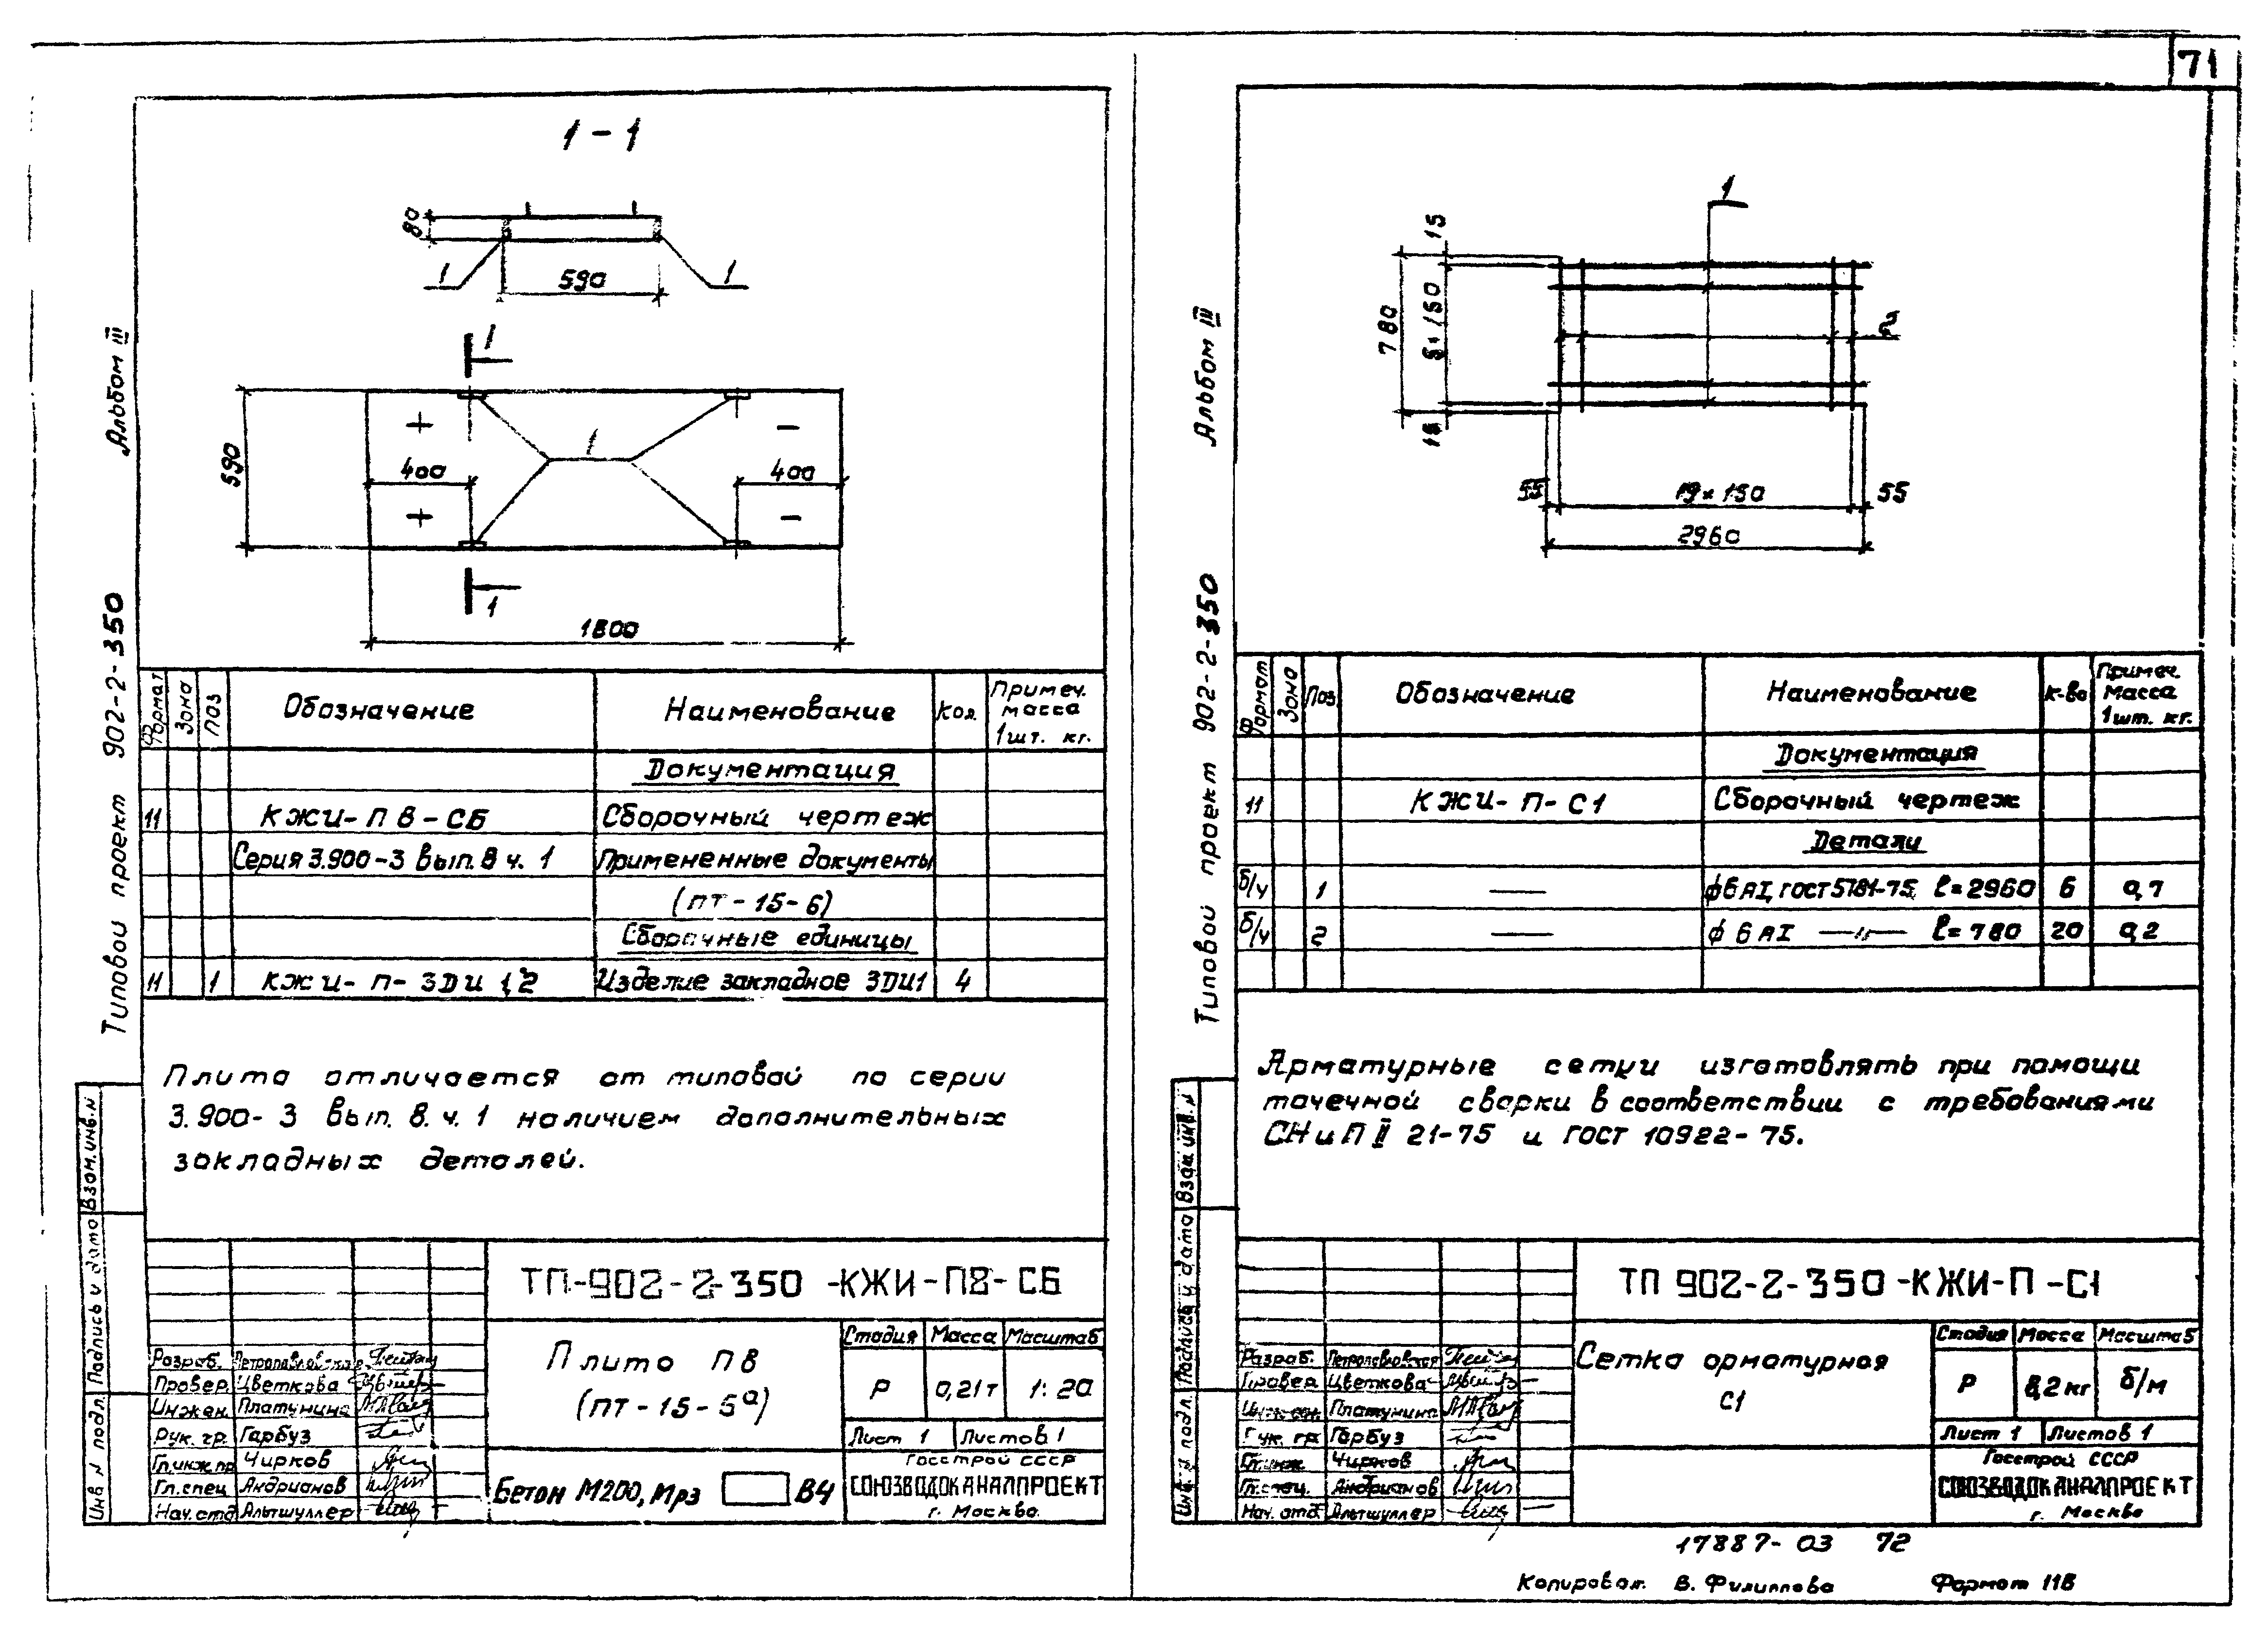 71
1-1
80
1
1
590
1
590
+
-
1
400
400
+
-
1
1800
Альбом III
Типовой проект 902-2-350
Формат
Зона
Поз
Обозначение
Наименование
Кол.
Примеч. масса 1шт. кг.
Документация
11 КЖИ-П8-СБ Сборочный чертеж
Серия 3.900-3 Вып. 8 ч. 1 Примененные документы
(ПТ-15-6)
Сборочные единицы
11 1 КЖИ-П-ЗДИ 1,2 Изделие закладное ЗДИ1 4
Плита отличается от типовой по серии
3.900-3 Вып. 8. ч. 1 наличием дополнительных
закладных деталей.
Взам. инв. N
Подпись и дата
Инв N подл.
ТП-902-2-350-КЖИ-П8-СБ
Плита П8
(ПТ-15-5а)
Стадия Масса Масштаб
Р 0,21т 1:20
Лист 1 Листов 1
Разраб. Петропавловская
Провер. Цветкова
Инжен. Платунина
Рук. гр. Гарбуз
Гл.инж.пр Чирков
Гл.спец Андрианов
Нач.отд Альтшуллер
Бетон М200, Мрз В4
Госстрой СССР
СОЮЗВОДОКАНАЛПРОЕКТ
г. Москва.
1
15
780
5×150
15
2
55
19×150
55
2960
Альбом III
Типовой проект 902-2-350
Формат
Зона
Поз.
Обозначение
Наименование
К-во
Примеч. масса 1шт. кг.
Документация
11 КЖИ-П-С1 Сборочный чертеж
Детали
б/ч 1 — ф6АI, ГОСТ 5781-75, ℓ=2960 6 0,7
б/ч 2 — ф6АI —"— ℓ=780 20 0,2
Арматурные сетки изготовлять при помощи
точечной сварки в соответствии с требованиями
СНиП II 21-75 и ГОСТ 10922-75.
Взам инв. N
Подпись и дата
Инв. N подл.
ТП 902-2-350-КЖИ-П-С1
Сетка арматурная
С1
Стадия Масса Масштаб
Р 8,2кг б/м
Лист 1 Листов 1
Разраб. Петропавловская
Провер Цветкова
Инжен. Платунина
Рук. гр. Гарбуз
Гл.инж Чирков
Гл.спец. Андрианов
Нач. отд. Альтшуллер
Госстрой СССР
СОЮЗВОДОКАНАЛПРОЕКТ
г. Москва
17887-03 72
Копировал. В. Филиппова Формат 11В